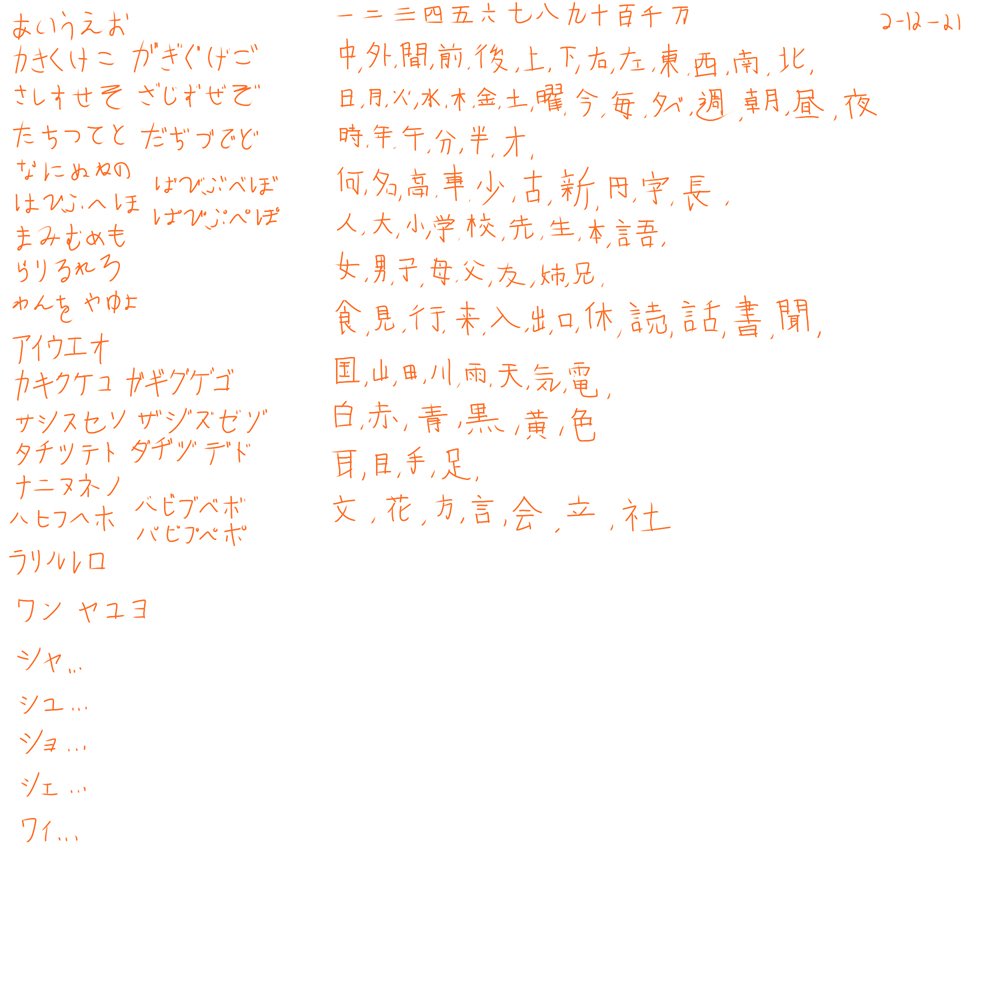 あいうえお
かきくけこ がぎぐげご
さしすせそ ざじずぜぞ
たちつてと だぢづでど
なにぬねの
はひふへほ ばびぶべぼ
ぱぴぷぺぽ
まみむめも
らりるれろ
わんを やゆよ
アイウエオ
カキクケコ ガギグゲゴ
サシスセソ ザジズゼゾ
タチツテト ダヂヅデド
ナニヌネノ
ハヒフヘホ バビブベボ
パピプペポ
ラリルレロ
ワン ヤユヨ
シャ...
シュ...
ショ...
シェ...
ワィ...
一二三四五六七八九十百千万
2-12-21
中,外,間,前,後,上,下,右,左,東,西,南,北,
日,月,火,水,木,金,土,曜,今,毎,夕べ,週,朝,昼,夜
時,年,午,分,半,才,
何,名,高,車,少,古,新,円,字,長,
人,大,小,学,校,先,生,本,語,
女,男,子,母,父,友,姉,兄,
食,見,行,来,入,出,口,休,読,話,書,聞,
国,山,田,川,雨,天,気,電,
白,赤,青,黒,黄,色
耳,目,手,足,
文,花,方,言,会,立,社